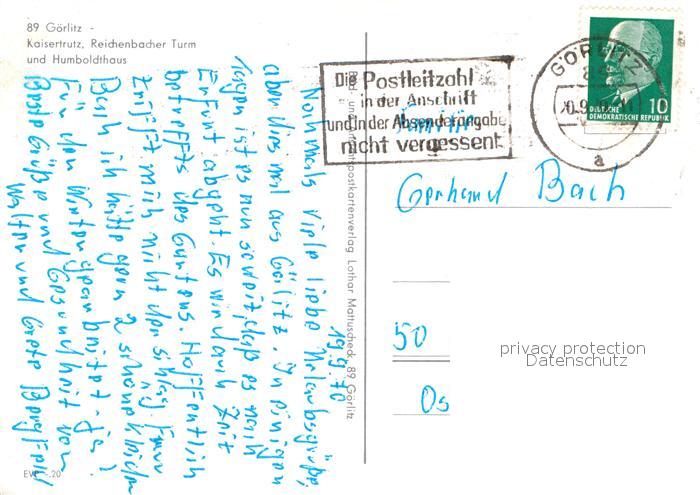 89 Görlitz -
Kaisertrutz, Reichenbacher Turm
und Humboldthaus
19.9.70
Nochmals viele liebe Urlaubsgrüße,
aber diesmal aus Görlitz. In einigen
Tagen ist es nun soweit, daß es nach
Erfurt abgeht. Es wird auch Zeit
betreffs des Gartens. Hoffentlich
trifft mich nicht der Schlag! Frau
Bach ich hätte gern 2 schöne
für den Wintergarten
Beste Grüße und Gesundheit von
Walter und Grete
EVP -.20
Verlag Lothar Mattuscheck, 89 Görlitz
Die Postleitzahl
in der Anschrift
und in der Absenderangabe
nicht vergessen!
GÖRLITZ
a
10
DEUTSCHE
DEMOKRATISCHE REPUBLIK
Familie
Gerhard Bach
50
privacy protection
Datenschutz